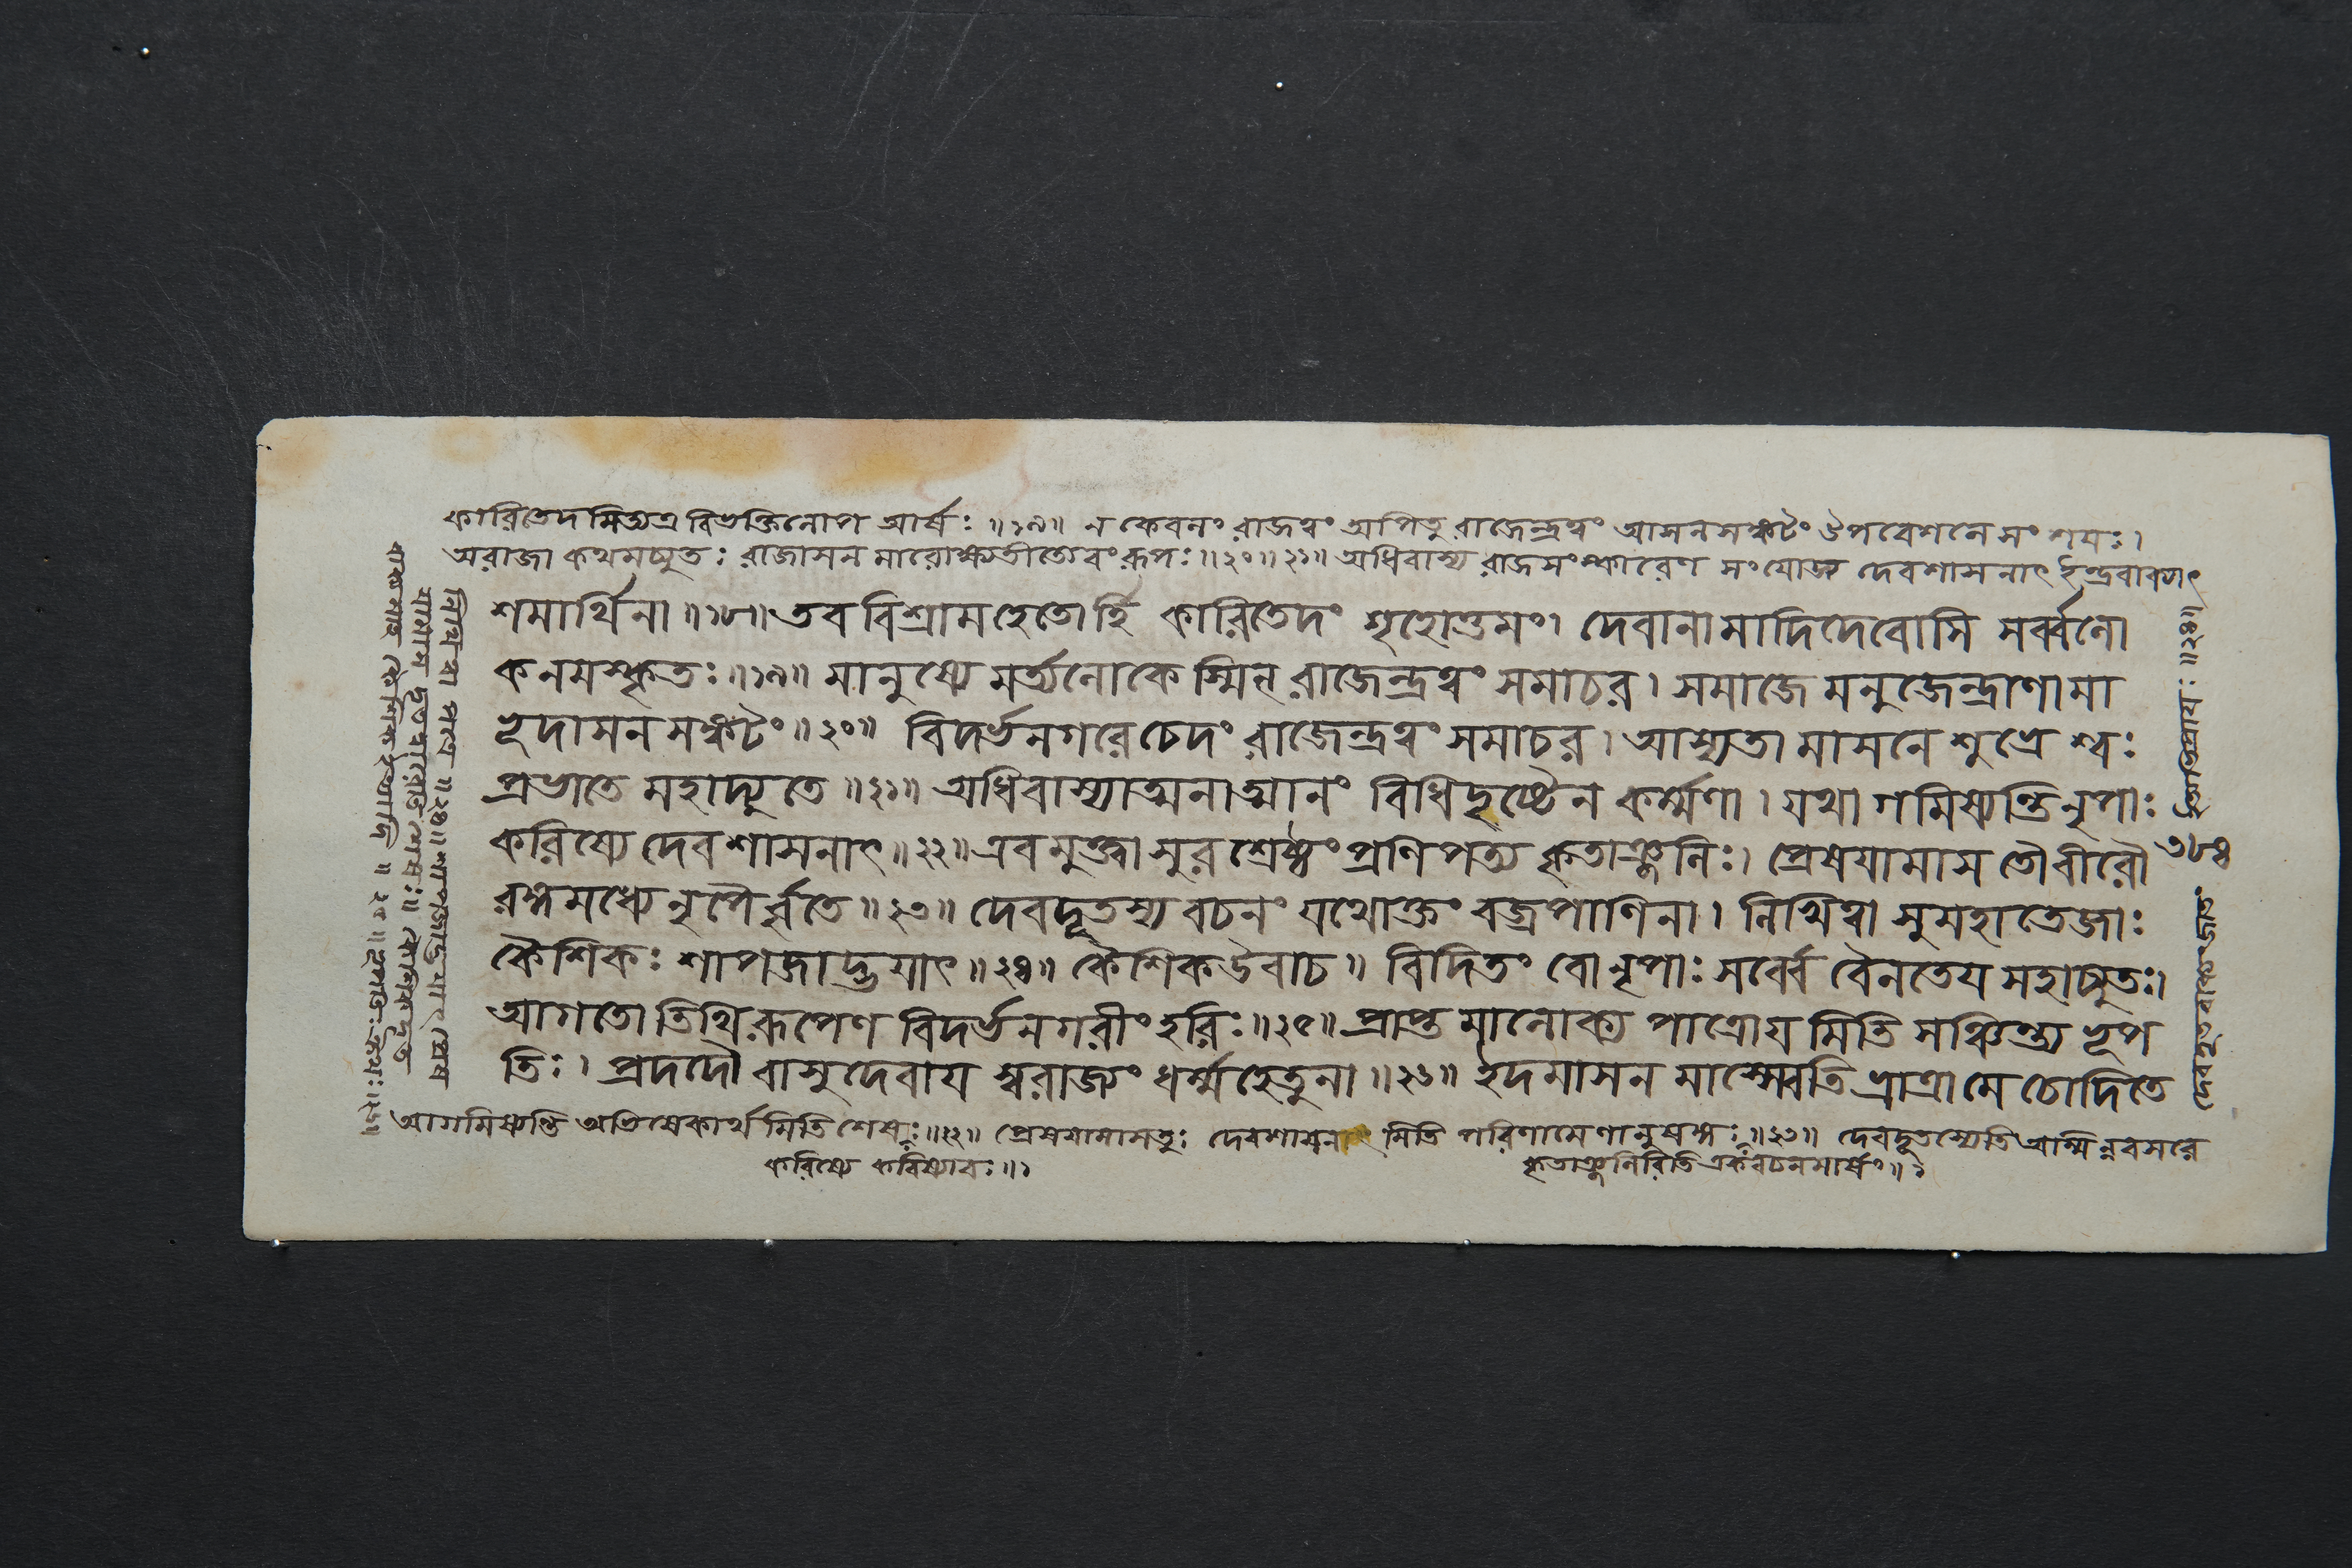 কারিতেদমিত্যত্র বিভক্তিলোপ আর্ষঃ ॥১৯॥ ন কেবলং রাজত্বং অপিতু রাজেন্দ্রত্বং আসনসঙ্কটং উপবেশনে সংশয়ঃ।
অরাজা কথমচ্যুতঃ রাজাসনমারোক্ষ্যতীত্যেবং রূপঃ ॥২০॥২১॥ অধিবাস্য রাজসংস্কারেণ সংযোজ্য দেবশাসনাৎ ইন্দ্রবাক্যাৎ
শমার্থিনা ॥১৮॥ তব বিশ্রামহেতোর্হি কারিতেদং গৃহোত্তমং। দেবানামাদিদেবোসি সর্ব্বলো
কনমস্কৃতঃ ॥১৯॥ মানুষ্যে মর্ত্যলোকেস্মিন্ রাজেন্দ্রত্বং সমাচর। সমাজে মনুজেন্দ্রাণাং মা
ভূদাসনসঙ্কটং ॥২০॥ বিদর্ভনগরে চেদং রাজেন্দ্রত্বং সমাচর। আস্যতামাসনে শুভ্রে শ্বঃ
প্রভাতে মহাদ্যুতে ॥২১॥ অধিবাস্যাত্মনাত্মানং বিধিদৃষ্টেন কর্ম্মণা। যথাগমিষ্যন্তি নৃপাঃ
করিষ্যে দেবশাসনাৎ ॥২২॥ এবমুক্ত্বা সুরশ্রেষ্ঠং প্রণিপত্য কৃতাঞ্জলিঃ। প্রেষয়ামাস তৌ বীরৌ
রঙ্গমধ্যে নৃপৈর্বৃতে ॥২৩॥ দেবদূতস্য বচনং যথোক্তং বজ্রপাণিনা। লিখিত্বা সুমহাতেজাঃ
কৈশিকঃ শাপজাদ্ভয়াৎ ॥২৪॥ কৈশিক উবাচ॥ বিদিতং বো নৃপাঃ সর্ব্বে বৈনতেয়মহাচ্যুতঃ।
আগতোতিথিরূপেণ বিদর্ভনগরীং হরিঃ ॥২৫॥ প্রাপ্তমালোক্য পাত্রোয়মিতি সঞ্চিন্ত্য ভূপ
তিঃ। প্রদদৌ বাসুদেবায় স্বরাজ্যং ধর্ম্মহেতুনা ॥২৬॥ ইদমাসনমাস্স্বেতি ভ্রাত্রা মে চোদিতে
আগমিষ্যন্তি অভিষেকার্থমিতি শেষঃ ॥২২॥ প্রেষয়ামাসতুঃ দেবশাসনাৎ মিতি পরিণামেণানুষঙ্গঃ ॥২৩॥ দেবদূতস্যেতি অস্মিন্নবসরে
করিষ্যে করিষ্যাবঃ ॥১
কৃতাঞ্জলিরিতি একবচনমার্ষং ॥১
৩৮৪